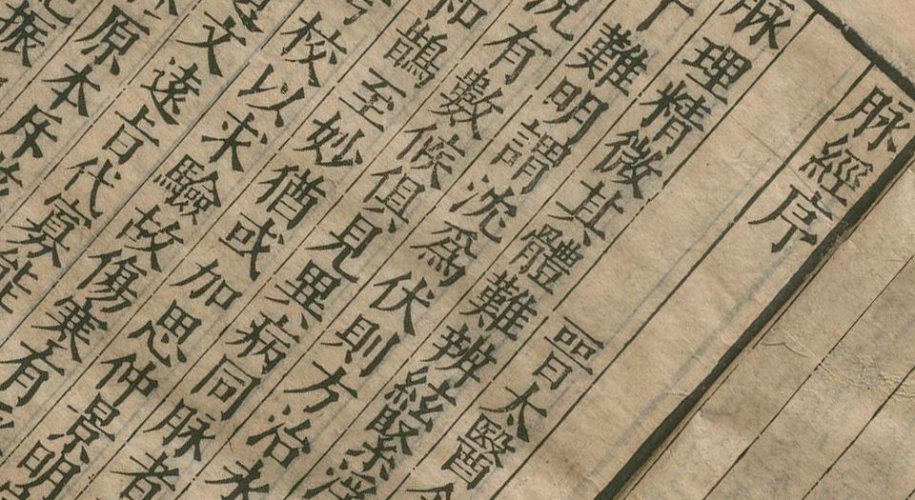 脉經序
晉太醫
脉理精微其體難辨絃緊浮
下難明謂沈爲伏則方治永
況有數候俱見異病同脉者
和鵲至妙猶或加思仲景明
校以求驗故傷寒有
文遠旨代寡能
原本斥
振